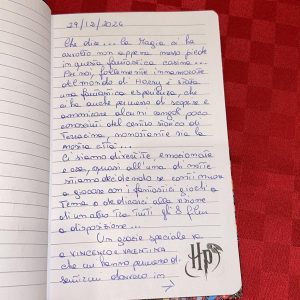 29/12/2024
Che dire... la Magia ci ha
avvolto non appena messo piede
in questa fantastica casina...
Per noi, fortemente innamorate
del mondo di Harry è stata
una fantastica esperienza, che
ci ha anche permesso di scoprire e
ammirare alcuni angoli poco
conosciuti del centro storico di
Terracina, nonostante sia la
nostra città...
Ci siamo divertite, emozionate
e ora, quasi all'una di notte
stiamo decidendo se continuare
a giocare con i fantastici giochi a
Tema o dedicarci alla visione
di un altro tra tutti gli 8 film
a disposizione...
Un grazie speciale va
a VINCENZO e VALENTINA
che mi hanno permesso di
sentirmi davvero in →
HP